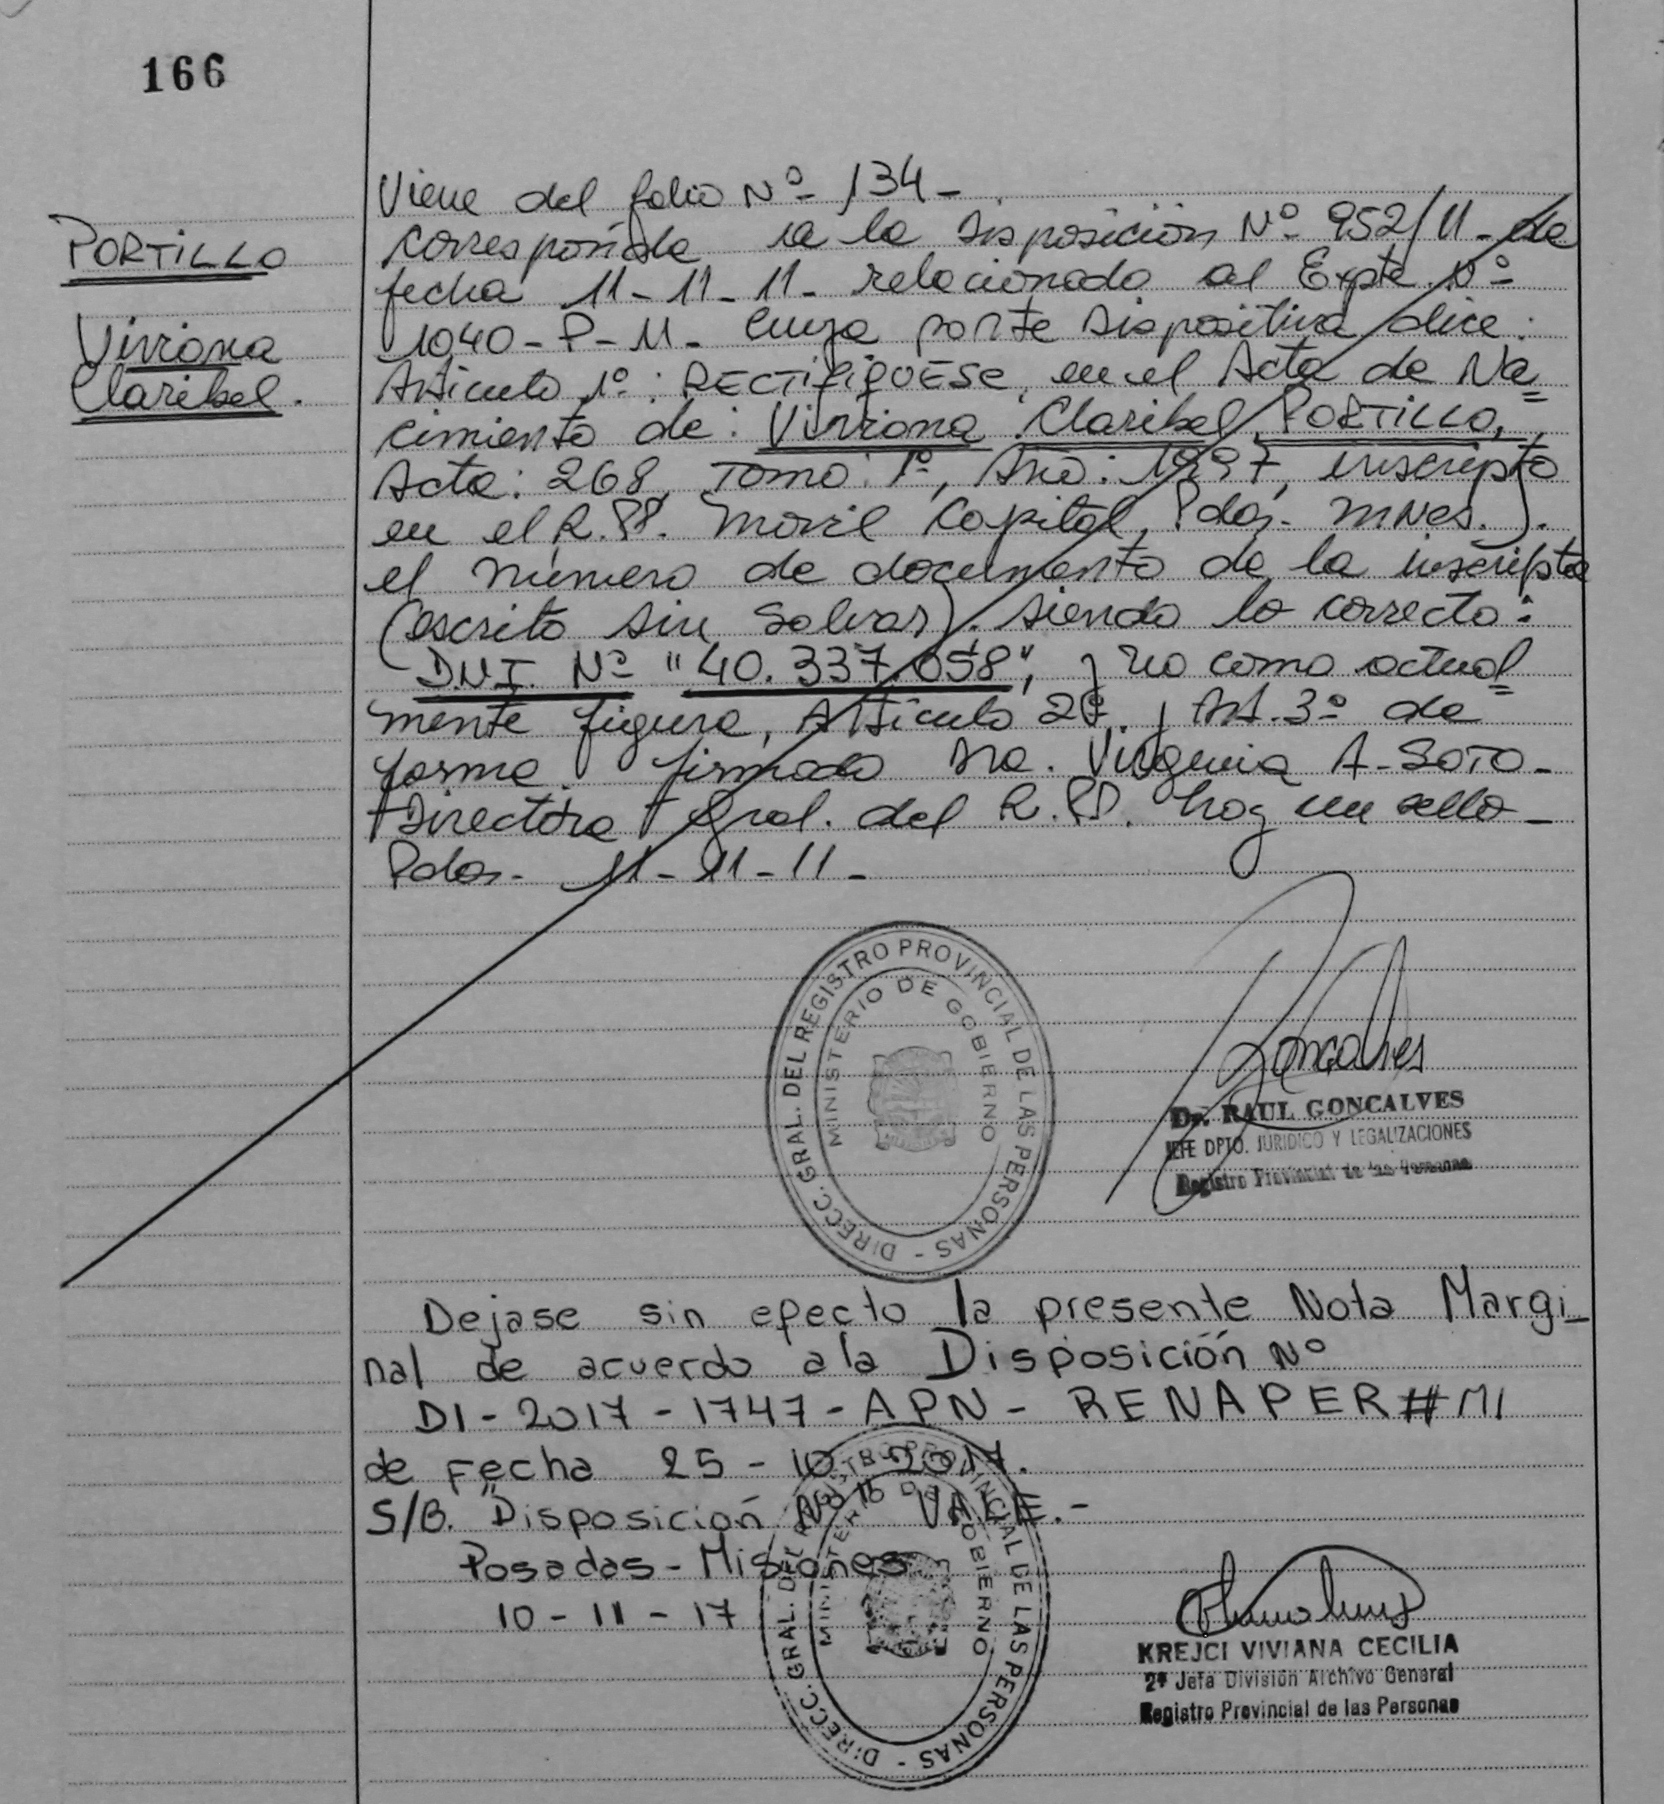 166
Viene del folio Nº 134-
PORTILLO
Viviana
Claribel.
corresponde a la Disposición Nº 952/11- de
fecha 11-11-11- relacionado al Expte. Nº-
1040-P-11- cuya parte dispositiva dice:
Artículo 1º: RECTIFIQUESE, en el Acta de Na=
cimiento de: Viviana Claribel PORTILLO,
Acta: 268, Tomo: 1º, Año: 1997, inscripto
en el R.PP. Movil Capital, Pdas. Mnes.).
el número de documento de la inscripta
(escrito sin salvar). siendo lo correcto:
D.N.I. Nº "40.337.058", y no como actual=
mente figura, Artículo 2º, Art. 3º de
forma. firmado Dra. Virginia A-SOTO-
Directora Gral. del R.PP. hay un sello-
Pdas- 11-11-11-
DIRECC. GRAL. DEL REGISTRO PROVINCIAL DE LAS PERSONAS -
MINISTERIO DE GOBIERNO
Goncalves
Dr. RAUL GONCALVES
JEFE DPTO. JURIDICO Y LEGALIZACIONES
Registro Provincial de las Personas
Dejase sin efecto la presente Nota Margi_
nal de acuerdo a la Disposición Nº
DI-2017-1747-APN-RENAPER#MI
de Fecha 25-10-2017.
S/B. "Disposición Nº" VALE.-
Posadas-Misiones
10-11-17
DIRECC. GRAL. DEL REGISTRO PROVINCIAL DE LAS PERSONAS -
MINISTERIO DE GOBIERNO
KREJCI VIVIANA CECILIA
2ª Jefa División Archivo General
Registro Provincial de las Personas